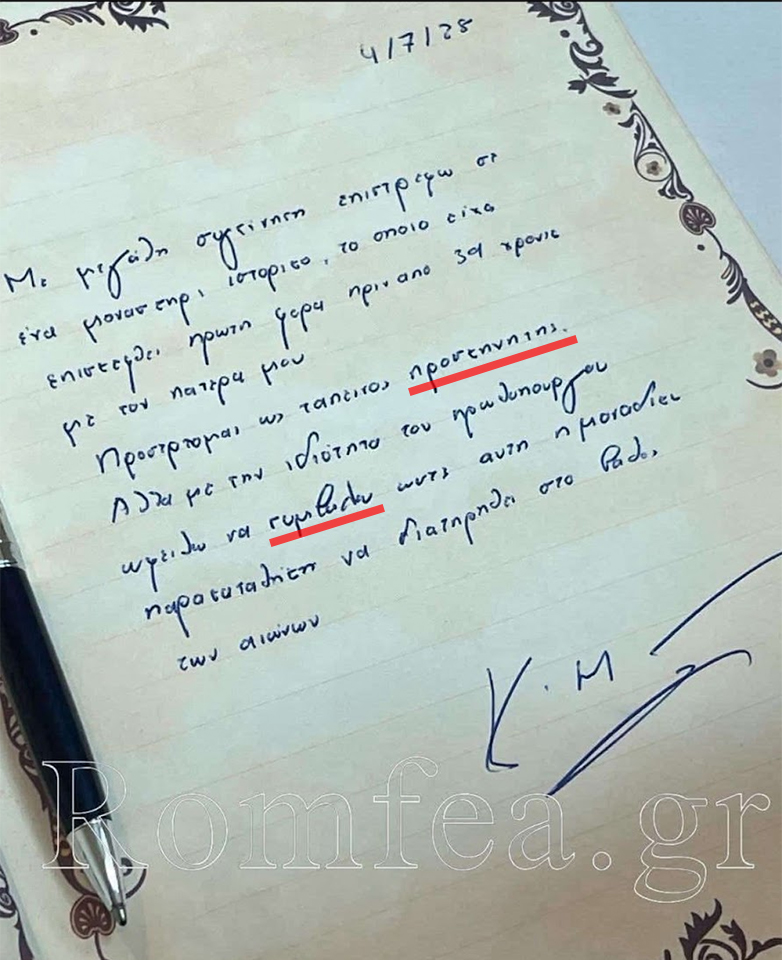 4/7/25
Με μεγάλη συγκίνηση επιστρεφω σε
ένα μοναστηρι ιστορικο, το οποιο είχα
επισκεφθει πρωτη φορα πριν απο 39 χρονια
με τον πατερα μου
Προσερχομαι ως ταπεινος προσκηνητης.
Αλλα με την ιδιότητα του πρωθυπουργου
οφειλω να συμβαλω ωστε αυτη η μοναδικη
παρακαταθηκη να διατηρηθει στο βαθος
των αιώνων
Κ. Μ
Romfea.gr